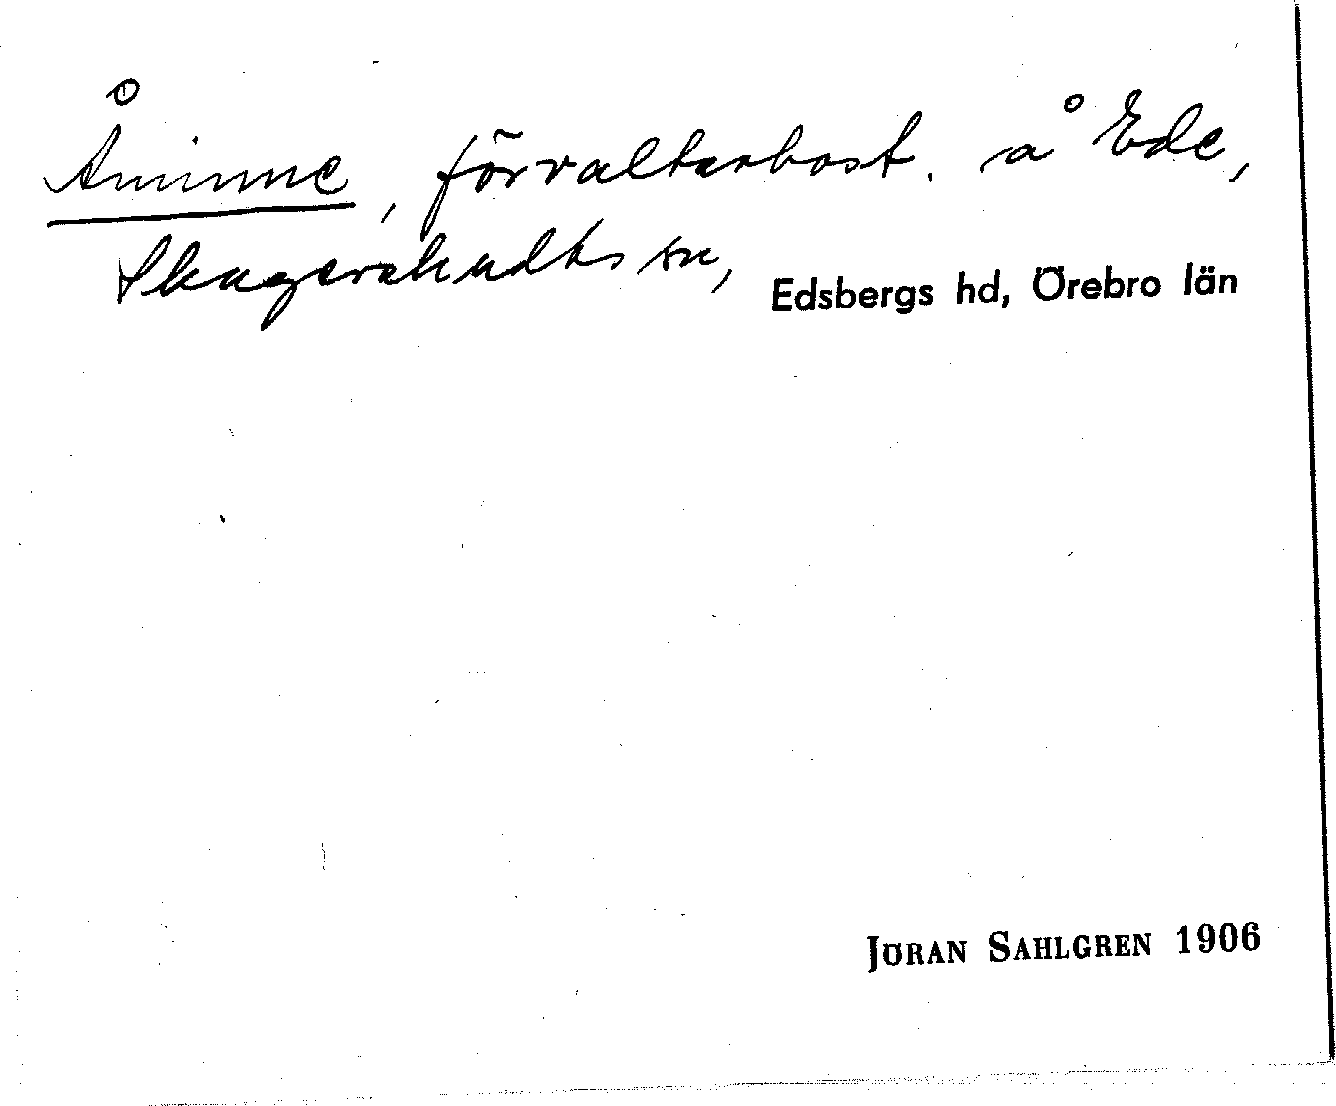 Åminne, förvaltarbost. å Ede,
Skagershults sn, Edsbergs hd, Örebro län
JÖRAN SAHLGREN 1906